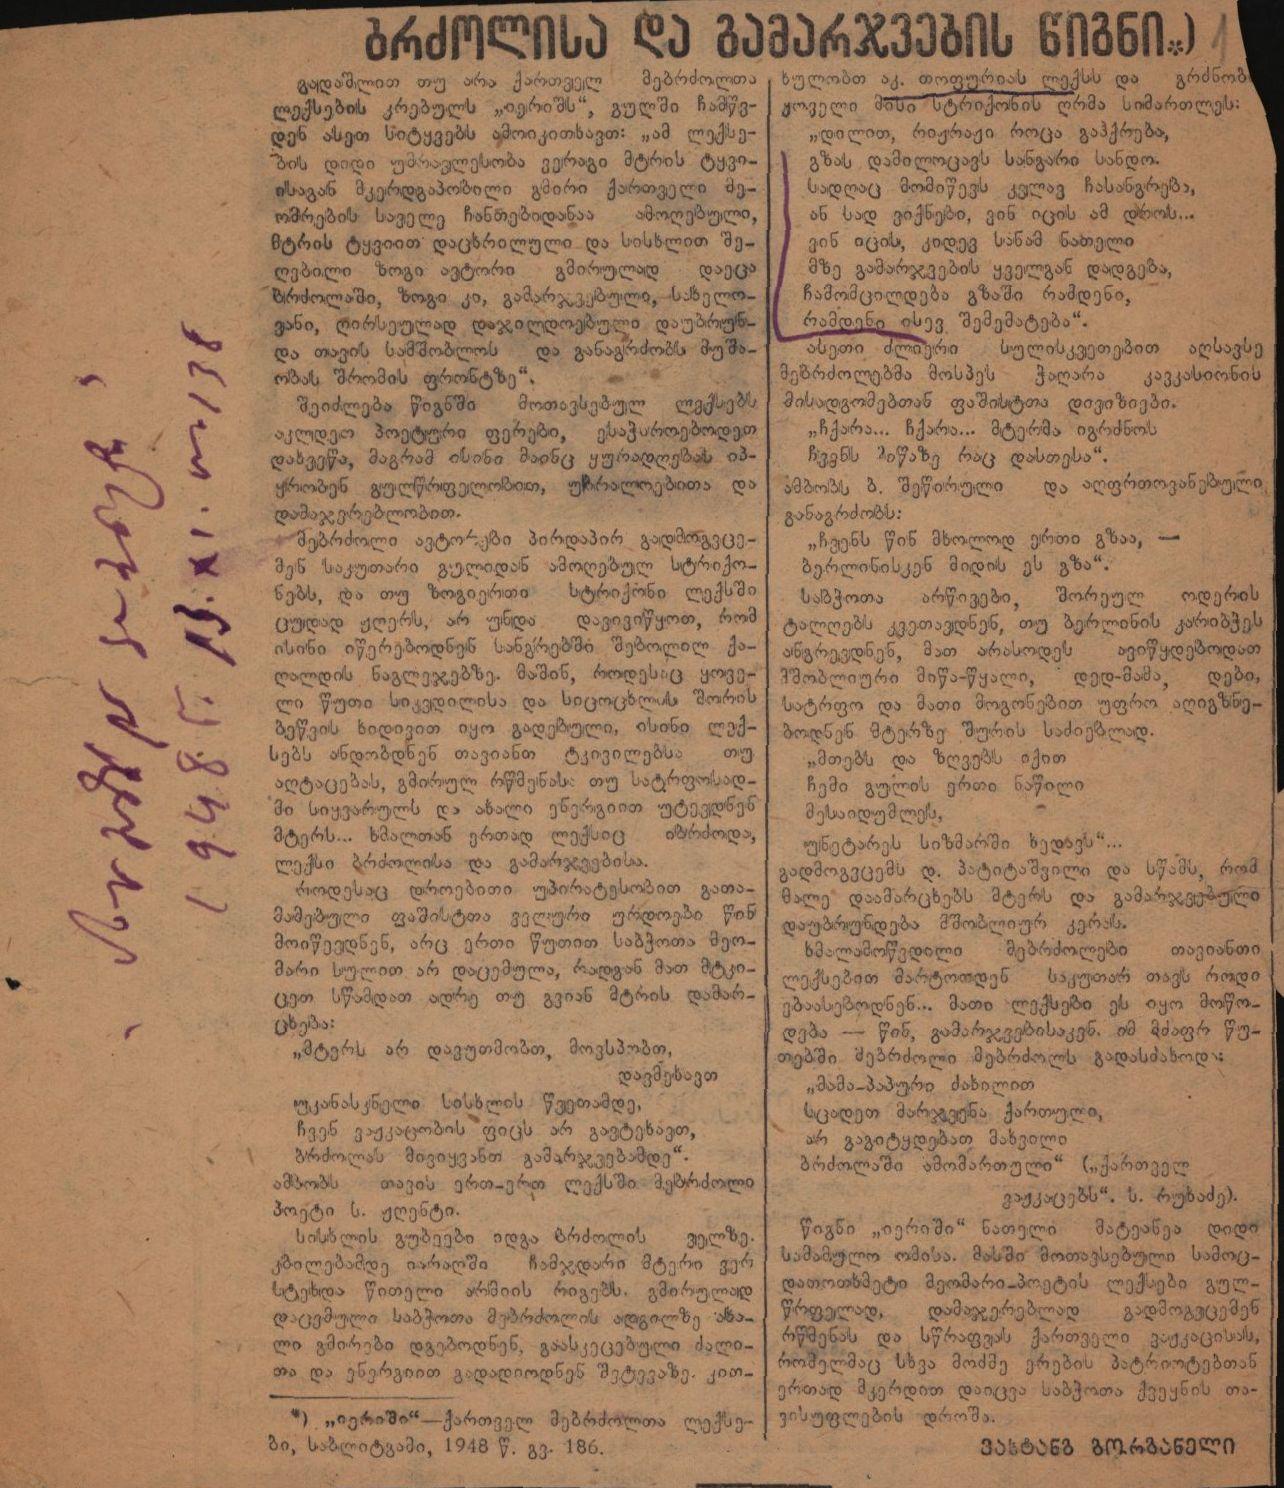 ბრძოლისა და გამარჯვების წიგნი*)
გადაშლით თუ არა ქართველ მებრძოლთა
ლექსების კრებულს „იერიშს“, გულში ჩამწვ-
დენ ასეთ სიტყვებს ამოიკითხავთ: „ამ ლექსე-
ბის დიდი უმრავლესობა ვერაგი მტრის ტყვი-
ისაგან მკერდგაპობილი გმირი ქართველი მე-
ომრების საველე ჩანთებიდანაა ამოღებული,
მტრის ტყვიით დაცხრილული და სისხლით შე-
ღებილი ზოგი ავტორი გმირულად დაეცა
ბრძოლაში, ზოგი კი, გამარჯვებული, სახელო-
ვანი, ღირსეულად დაჯილდოებული დაუბრუნ-
და თავის სამშობლოს და განაგრძობს მუშა-
ობას შრომის ფრონტზე“.
შეიძლება წიგნში მოთავსებულ ლექსებს
აკლდეთ პოეტური ფერები, ესაჭიროებოდეთ
დახვეწა, მაგრამ ისინი მაინც ყურადღებას იპ-
ყრობენ გულწრფელობით, უშუალოებითა და
დამაჯერებლობით.
მებრძოლი ავტორები პირდაპირ გადმოგვცე-
მენ საკუთარი გულიდან ამოღებულ სტრიქო-
ნებს, და თუ ზოგიერთი სტრიქონი ლექსში
ცუდად ჟღერს, არ უნდა დავივიწყოთ, რომ
ისინი იწერებოდნენ სანგრებში შებოლილ ქა-
ღალდის ნაგლეჯებზე. მაშინ, როდესაც ყოვე-
ლი წუთი სიკვდილისა და სიცოცხლის შორის
ბეწვის ხიდივით იყო გადებული, ისინი ლექ-
სებს ანდობდნენ თავიანთ ტკივილებსა თუ
აღტაცებას, გმირულ რწმენასა თუ სატრფოსად-
მი სიყვარულს და ახალი ენერგიით უტევდნენ
მტერს... ხმალთან ერთად ლექსიც იბრძოდა,
ლექსი ბრძოლისა და გამარჯვებისა.
როდესაც დროებითი უპირატესობით გათა-
მამებული ფაშისტთა ველური ურდოები წინ
მოიწევდნენ, არც ერთი წუთით საბჭოთა მეო-
მარი სულით არ დაცემულა, რადგან მათ მტკი-
ცეთ სწამდათ ადრე თუ გვიან მტრის დამარ-
ცხება:
„მტერს არ დავუთმობთ, მოვსპობთ,
დავმეხავთ
უკანასკნელი სისხლის წვეთამდე,
ჩვენ ვაჟკაცობის ფიცს არ გავტეხავთ,
ბრძოლას მივიყვანთ გამარჯვებამდე“.
ამბობს თავის ერთ-ერთ ლექსში მებრძოლი
პოეტი ს. ჟღენტი.
სისხლის გუბეები იდგა ბრძოლის ველზე.
კბილებამდე იარაღში ჩამჯდარი მტერი ვერ
სტეხდა წითელი არმიის რიგებს. გმირულად
დაცემული საბჭოთა მებრძოლის ადგილზე ახა-
ლი გმირები დგებოდნენ, გაასკეცებული ძალი-
თა და ენერგიით გადადიოდნენ შეტევაზე. კით-
*) „იერიში“—ქართველ მებრძოლთა ლექსე-
ბი, საბლიტგამი, 1948 წ. გვ. 186.
ხულობთ აკ. თოფურიას ლექსს და გრძნობ
ყოველი მისი სტრიქონის ღრმა სიმართლეს:
„დილით, რიჟრაჟი როცა გაჰქრება,
გზას დამილოცავს სანგარი სანდო.
სადღაც მომიწევს კვლავ ჩასანგრება,
ან სად ვიქნები, ვინ იცის ამ დროს...
ვინ იცის, კიდევ სანამ ნათელი
მზე გამარჯვების ყველგან დადგება,
ჩამომცილდება გზაში რამდენი,
რამდენი ისევ შემემატება“.
ასეთი ძლიერი სულისკვეთებით აღსავსე
მებრძოლებმა მოსპეს ჭაღარა კავკასიონის
მისადგომებთან ფაშისტთა დივიზიები.
„ჩქარა... ჩქარა... მტერმა იგრძნოს
ჩვენს მიწაზე რაც დასთესა“.
ამბობს ბ. შეწირული და აღფრთოვანებული
განაგრძობს:
„ჩვენს წინ მხოლოდ ერთი გზაა, —
ბერლინისკენ მიდის ეს გზა“.
საბჭოთა არწივები, შორეულ ოდერის
ტალღებს კვეთავდნენ, თუ ბერლინის კარიბჭეს
ანგრევდნენ, მათ არასოდეს ავიწყდებოდათ
მშობლიური მიწა-წყალი, დედ-მამა, დები,
სატრფო და მათი მოგონებით უფრო აღიგზნე-
ბოდნენ მტერზე შურის საძიებლად.
„მთებს და ზღვებს იქით
ჩემი გულის ერთი ნაწილი
მესაიდუმლეს,
უნეტარეს სიზმარში ხედავს“...
გადმოგვცემს დ. პატიტაშვილი და სწამს, რომ
მალე დაამარცხებს მტერს და გამარჯვებული
დაუბრუნდება მშობლიურ კერას.
ხმალამოწვდილი მებრძოლები თავიანთი
ლექსებით მარტოოდენ საკუთარ თავს როდი
ებაასებოდნენ... მათი ლექსები ეს იყო მოწო-
დება — წინ, გამარჯვებისაკენ. იმ მძაფრ წუ-
თებში მებრძოლი მებრძოლს გადასძახოდა:
„მამა-პაპური ძახილით
სცადეთ მარჯვენა ქართული,
არ გაგიტყდებათ მახვილი
ბრძოლაში ამომართული“ („ქართველ
ვაჟკაცებს“. ს. რუხაძე).
წიგნი „იერიში“ ნათელი მატეანეა დიდი
სამამულო ომისა. მასში მოთავსებული სამოც-
დათოთხმეტი მეომარი-პოეტის ლექსები გულ-
წრფელად, დამაჯერებლად გადმოგვცემენ
რწმენას და სწრაფვას ქართველი ვაჟკაცისას,
რომელმაც სხვა მოძმე ერების პატრიოტებთან
ერთად მკერდით დაიცვა საბჭოთა ქვეყნის თა-
ვისუფლების დროშა.
ვახტანგ გორგანელი
1948 წ. 13. XI. № 138